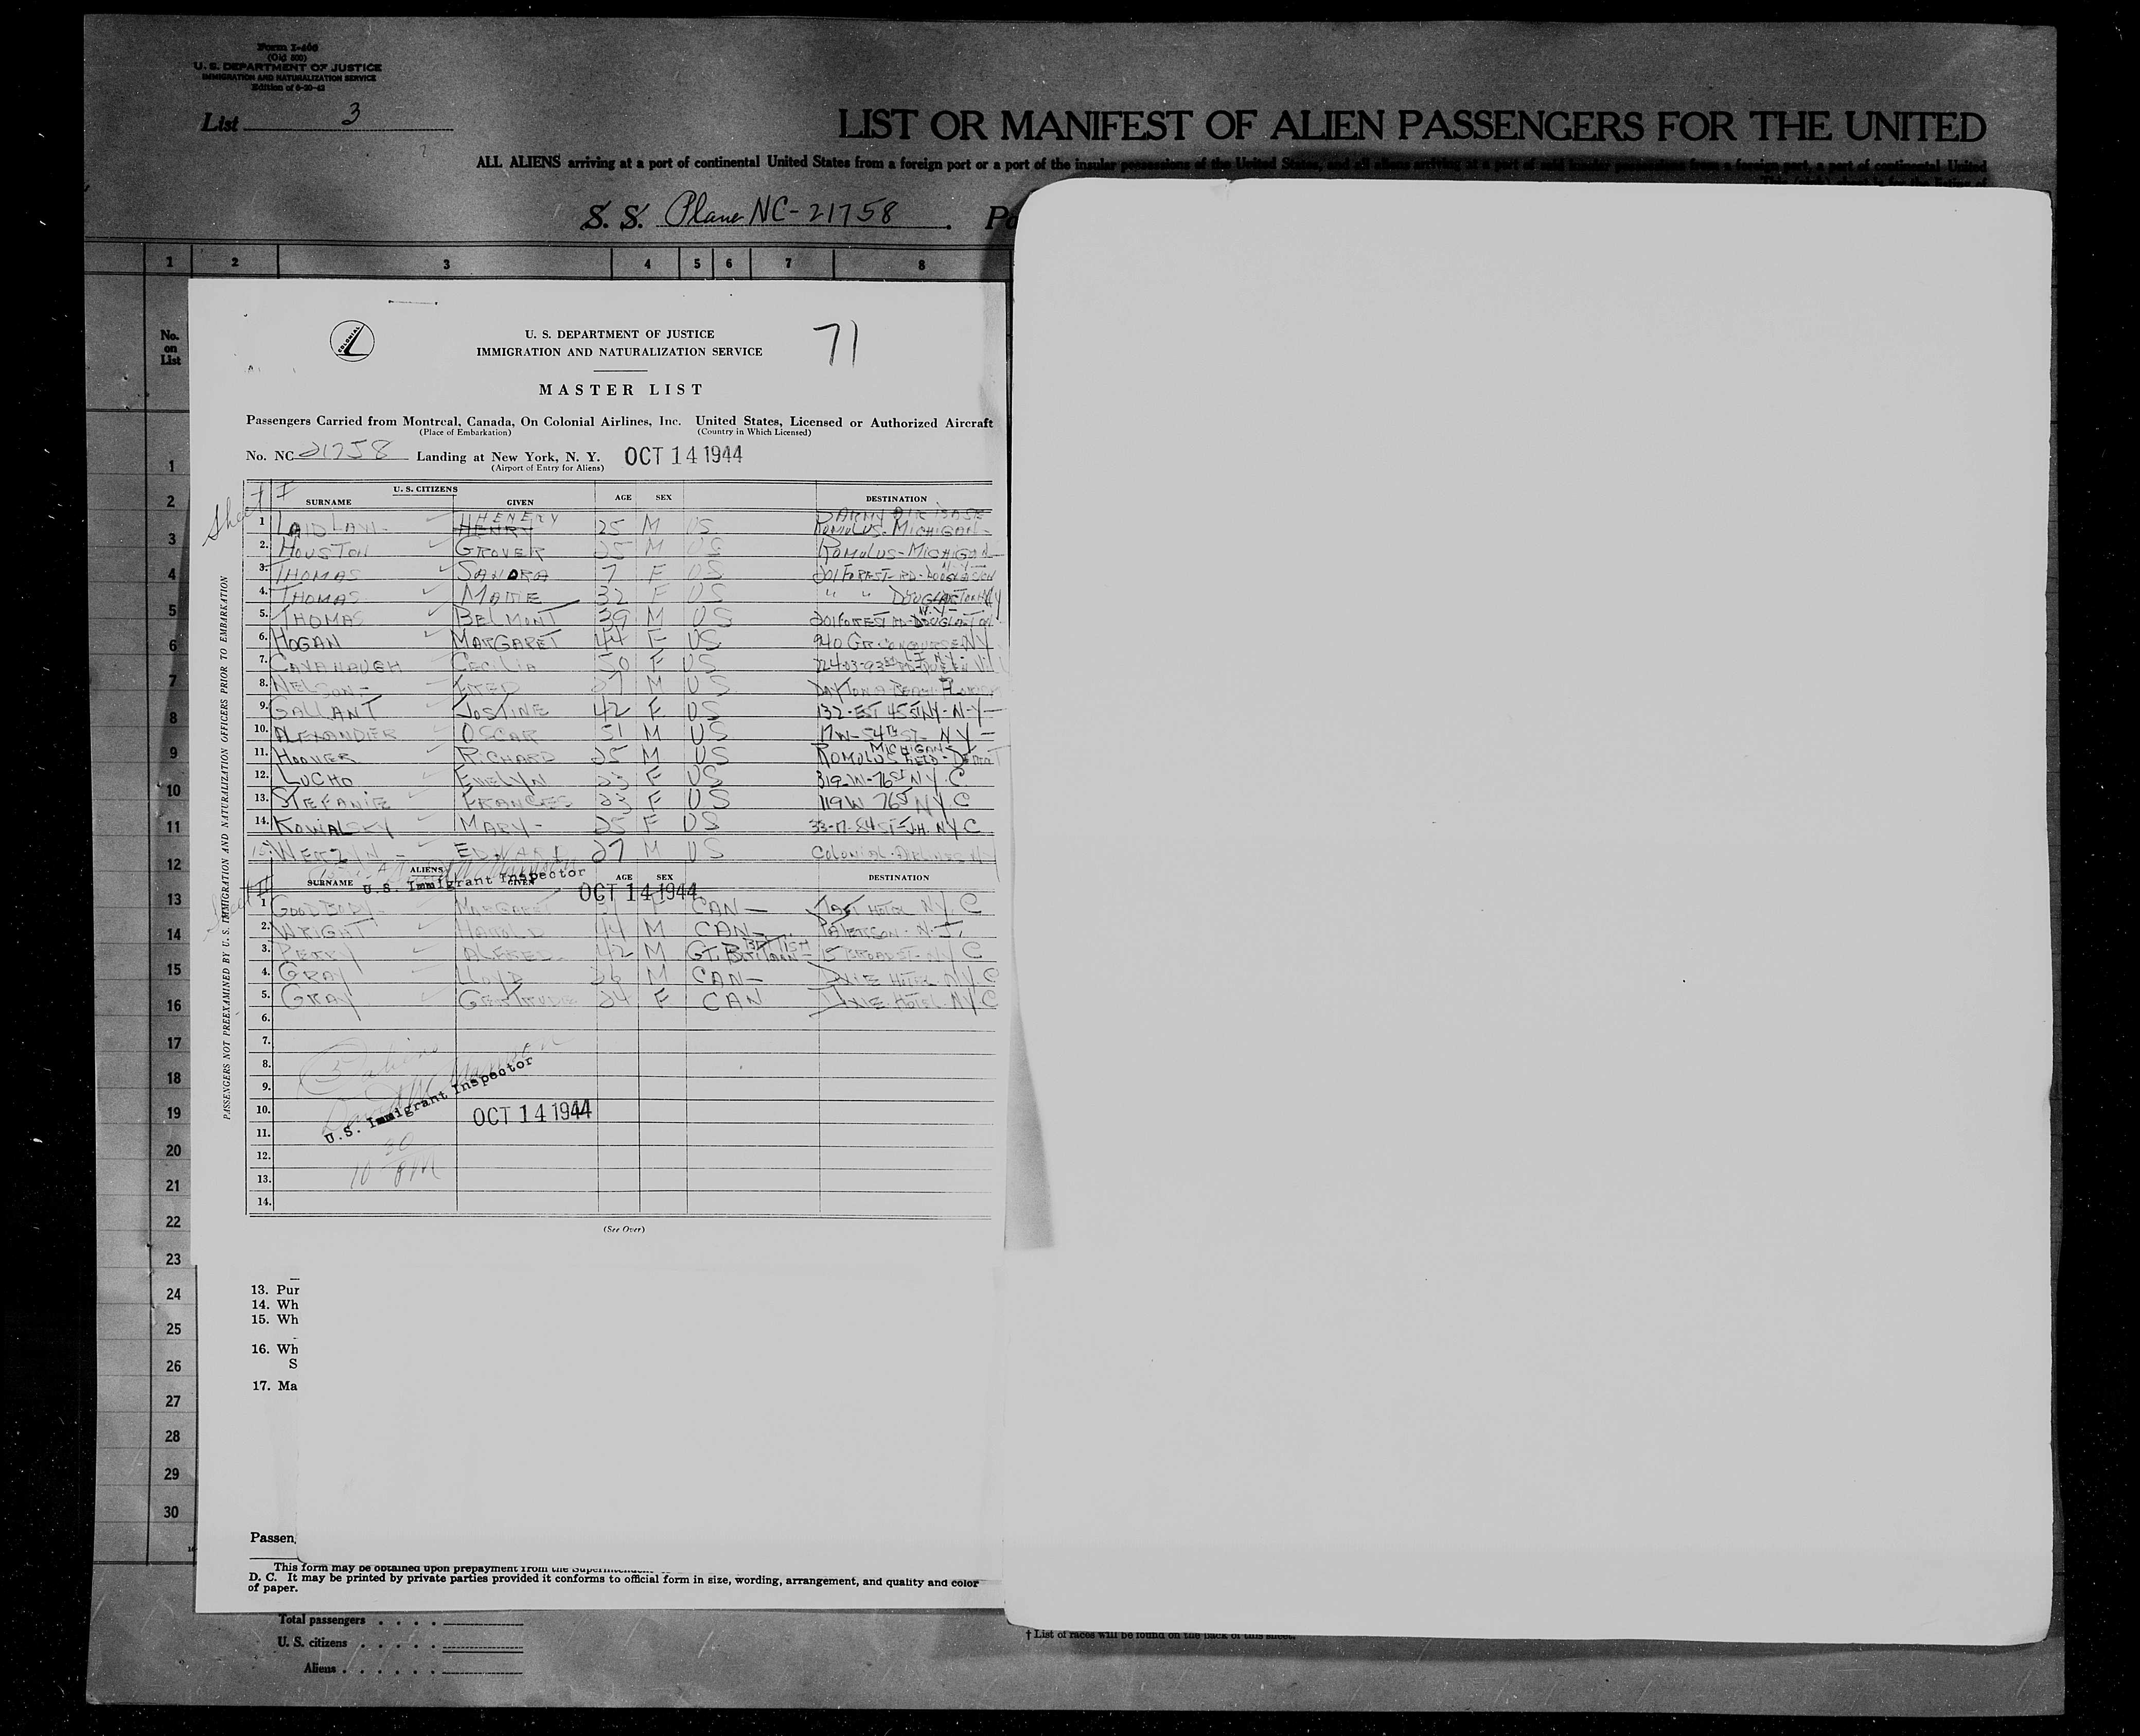 Form I-466
(Old 500)
U. S. DEPARTMENT OF JUSTICE
IMMIGRATION AND NATURALIZATION SERVICE
Edition of 6-20-42
List 3
LIST OR MANIFEST OF ALIEN PASSENGERS FOR THE UNITED
ALL ALIENS arriving at a port of continental United States from a foreign port or a port of the insular possessions of the United States, and all aliens arriving at a port of said insular possessions from a foreign port, a port of continental United
S. S. Plane NC-21758
1 2 3 4 5 6 7 8
No. on List
COLONIAL
U. S. DEPARTMENT OF JUSTICE
71
IMMIGRATION AND NATURALIZATION SERVICE
MASTER LIST
Passengers Carried from Montreal, Canada, On Colonial Airlines, Inc. United States, Licensed or Authorized Aircraft
(Place of Embarkation) (Country in Which Licensed)
No. NC 21758 Landing at New York, N. Y. OCT 14 1944
(Airport of Entry for Aliens)
U. S. CITIZENS
SURNAME GIVEN AGE SEX DESTINATION
1 LAIDLAW- HENERY HENRY 25 M US ARMY AIR BASE ROMULUS-MICHIGAN-
2. HOUSTON GROVER 25 M US ROMULUS-MICHIGAN
3. THOMAS SANDRA 7 F US 201 FOREST-RD-DOUGLASTON N.Y-
4. THOMAS 32 F US " " DOUGLASTON NY
5. THOMAS BELMONT 39 M US 201 FOREST RD-DOUGLASTON N.Y-
6. HOGAN MARGARET 44 F US 940 GR. CONCOURSE NY
7. CAVANAUGH CECILIA 50 F US 224-03-93
8. NELSON- FRED 27 M US DAYTONA BEACH FLORIDA
9. GALLANT JUSTINE 42 F US 132-EST 45ST NY-N-Y-
10. ALEXANDER OSCAR 51 M US 17W-54TH ST- NY-
11. HOOVER RICHARD 25 M US ROMULUS FIELD-DETROIT MICHIGAN-
12. LUCHO EVELYN 23 F US 319-W-76ST NY.C
13. STEFANIE FRANCES 23 F US 119W 76ST NY.C
14. KOWALSKY MARY- 25 F US 33-17-84 ST-J.H. NYC
15. EDWARD 27 M US COLONIAL-AIRLINES NY
ALIENS
U.S. Immigrant Inspector
OCT 14 1944
SURNAME GIVEN AGE SEX DESTINATION
1 GOODBODY- MARGARET F CAN- TAFT HOTEL NY.C
2. WRIGHT HAROLD 44 M CAN- PATERSON-N.J.
3. PERRY ALFRED 42 M GT. BRITAIN- BRITISH 15 BROAD ST-NYC
4. GRAY LLOYD 26 M CAN- DIXIE HOTEL NYC
5. GRAY GERTRUDE 24 F CAN DIXIE-HOTEL-NYC
6.
7.
8.
9.
10.
11.
12.
13.
14.
U.S. Immigrant Inspector
OCT 14 1944
10 30 PM
(See Over)
PASSENGERS NOT PREEXAMINED BY U. S. IMMIGRATION AND NATURALIZATION OFFICERS PRIOR TO EMBARKATION
1
2
3
4
5
6
7
8
9
10
11
12
13
14
15
16
17
18
19
20
21
22
23
24
25
26
27
28
29
30
13. Pur
14. Wh
15. Wh
16. Wh
S
17. Ma
Passen
This form may be obtained upon prepayment from the
D. C. It may be printed by private parties provided it conforms to official form in size, wording, arrangement, and quality and color
of paper.
Total passengers . . . .
U. S. citizens . . . . .
Aliens . . . . . .
† List of races will be found on the back of this sheet.